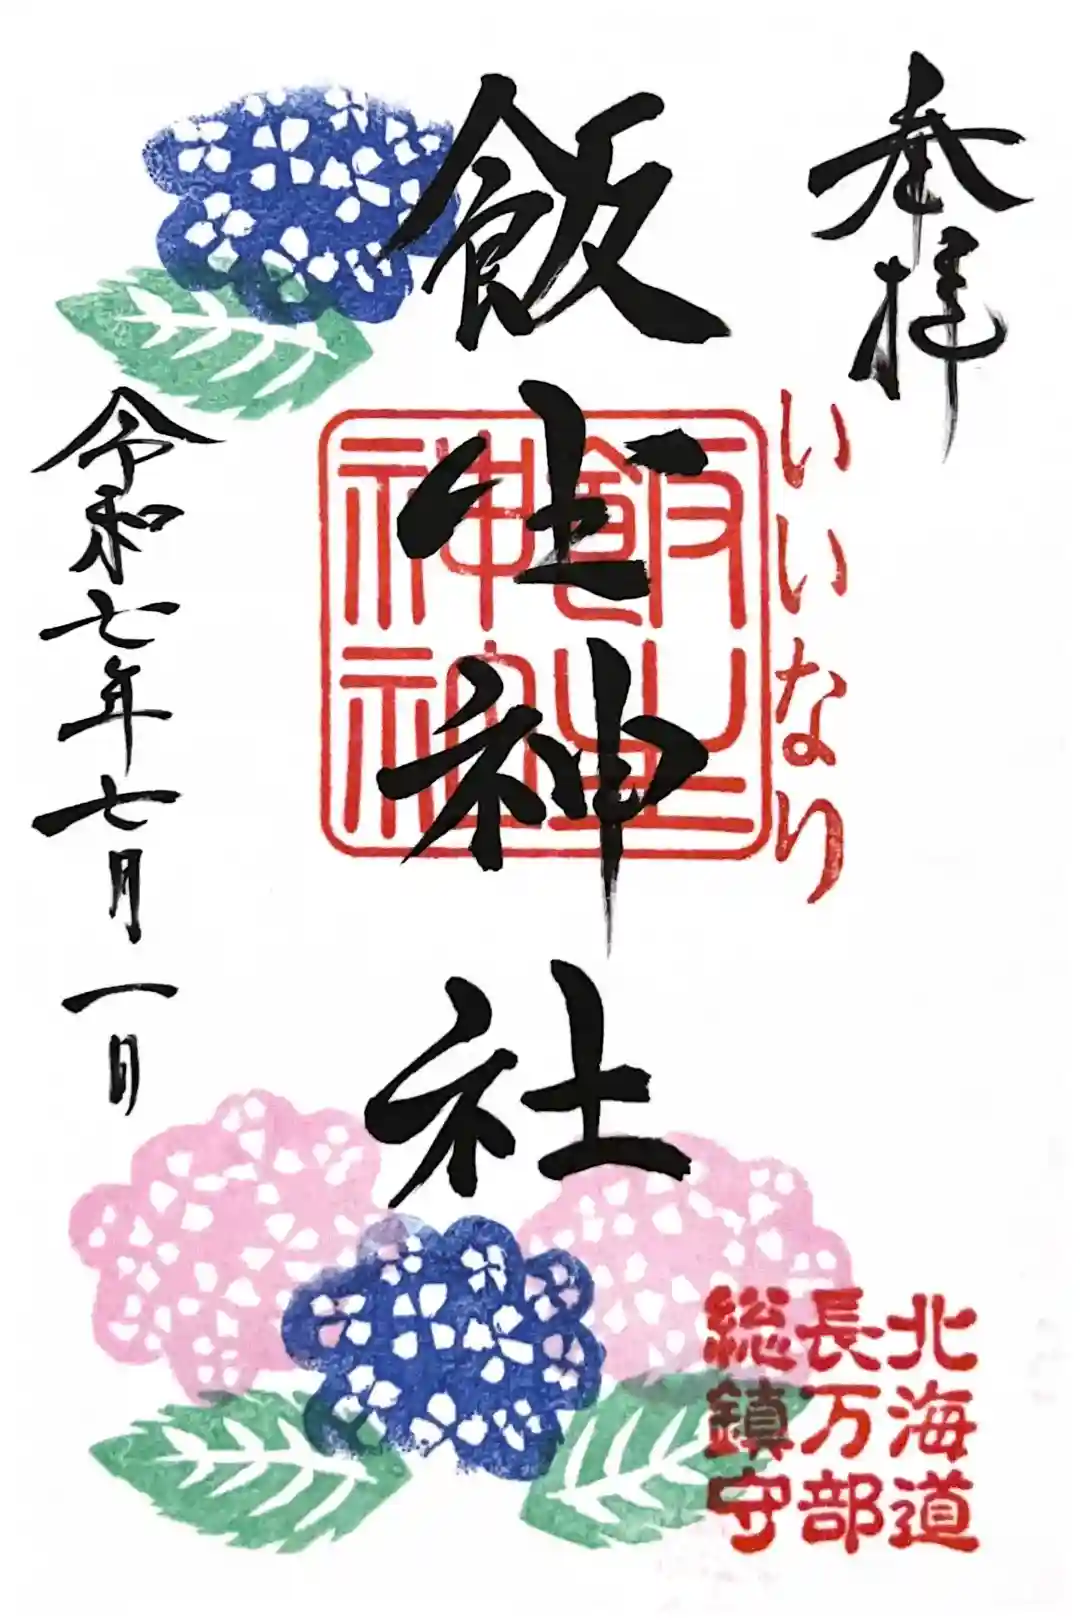 奉拝
いいなり
飯生神社
飯生
神社
令和七年七月一日
北海道
長万部
総鎮守